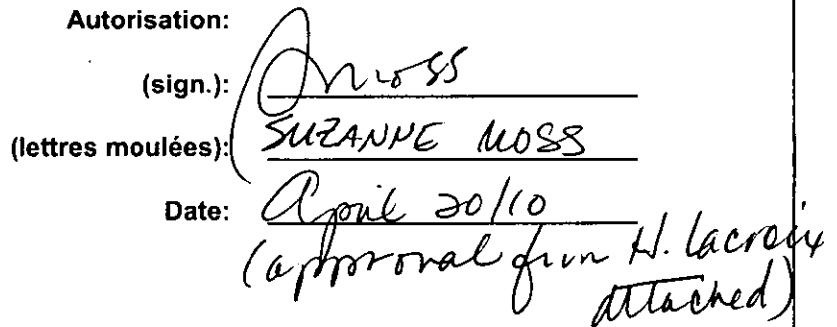 Autorisation:
(sign.): SMoss
(lettres moulées): SUZANNE MOSS
Date: April 20/10
(approval from H. Lacroix
attached)